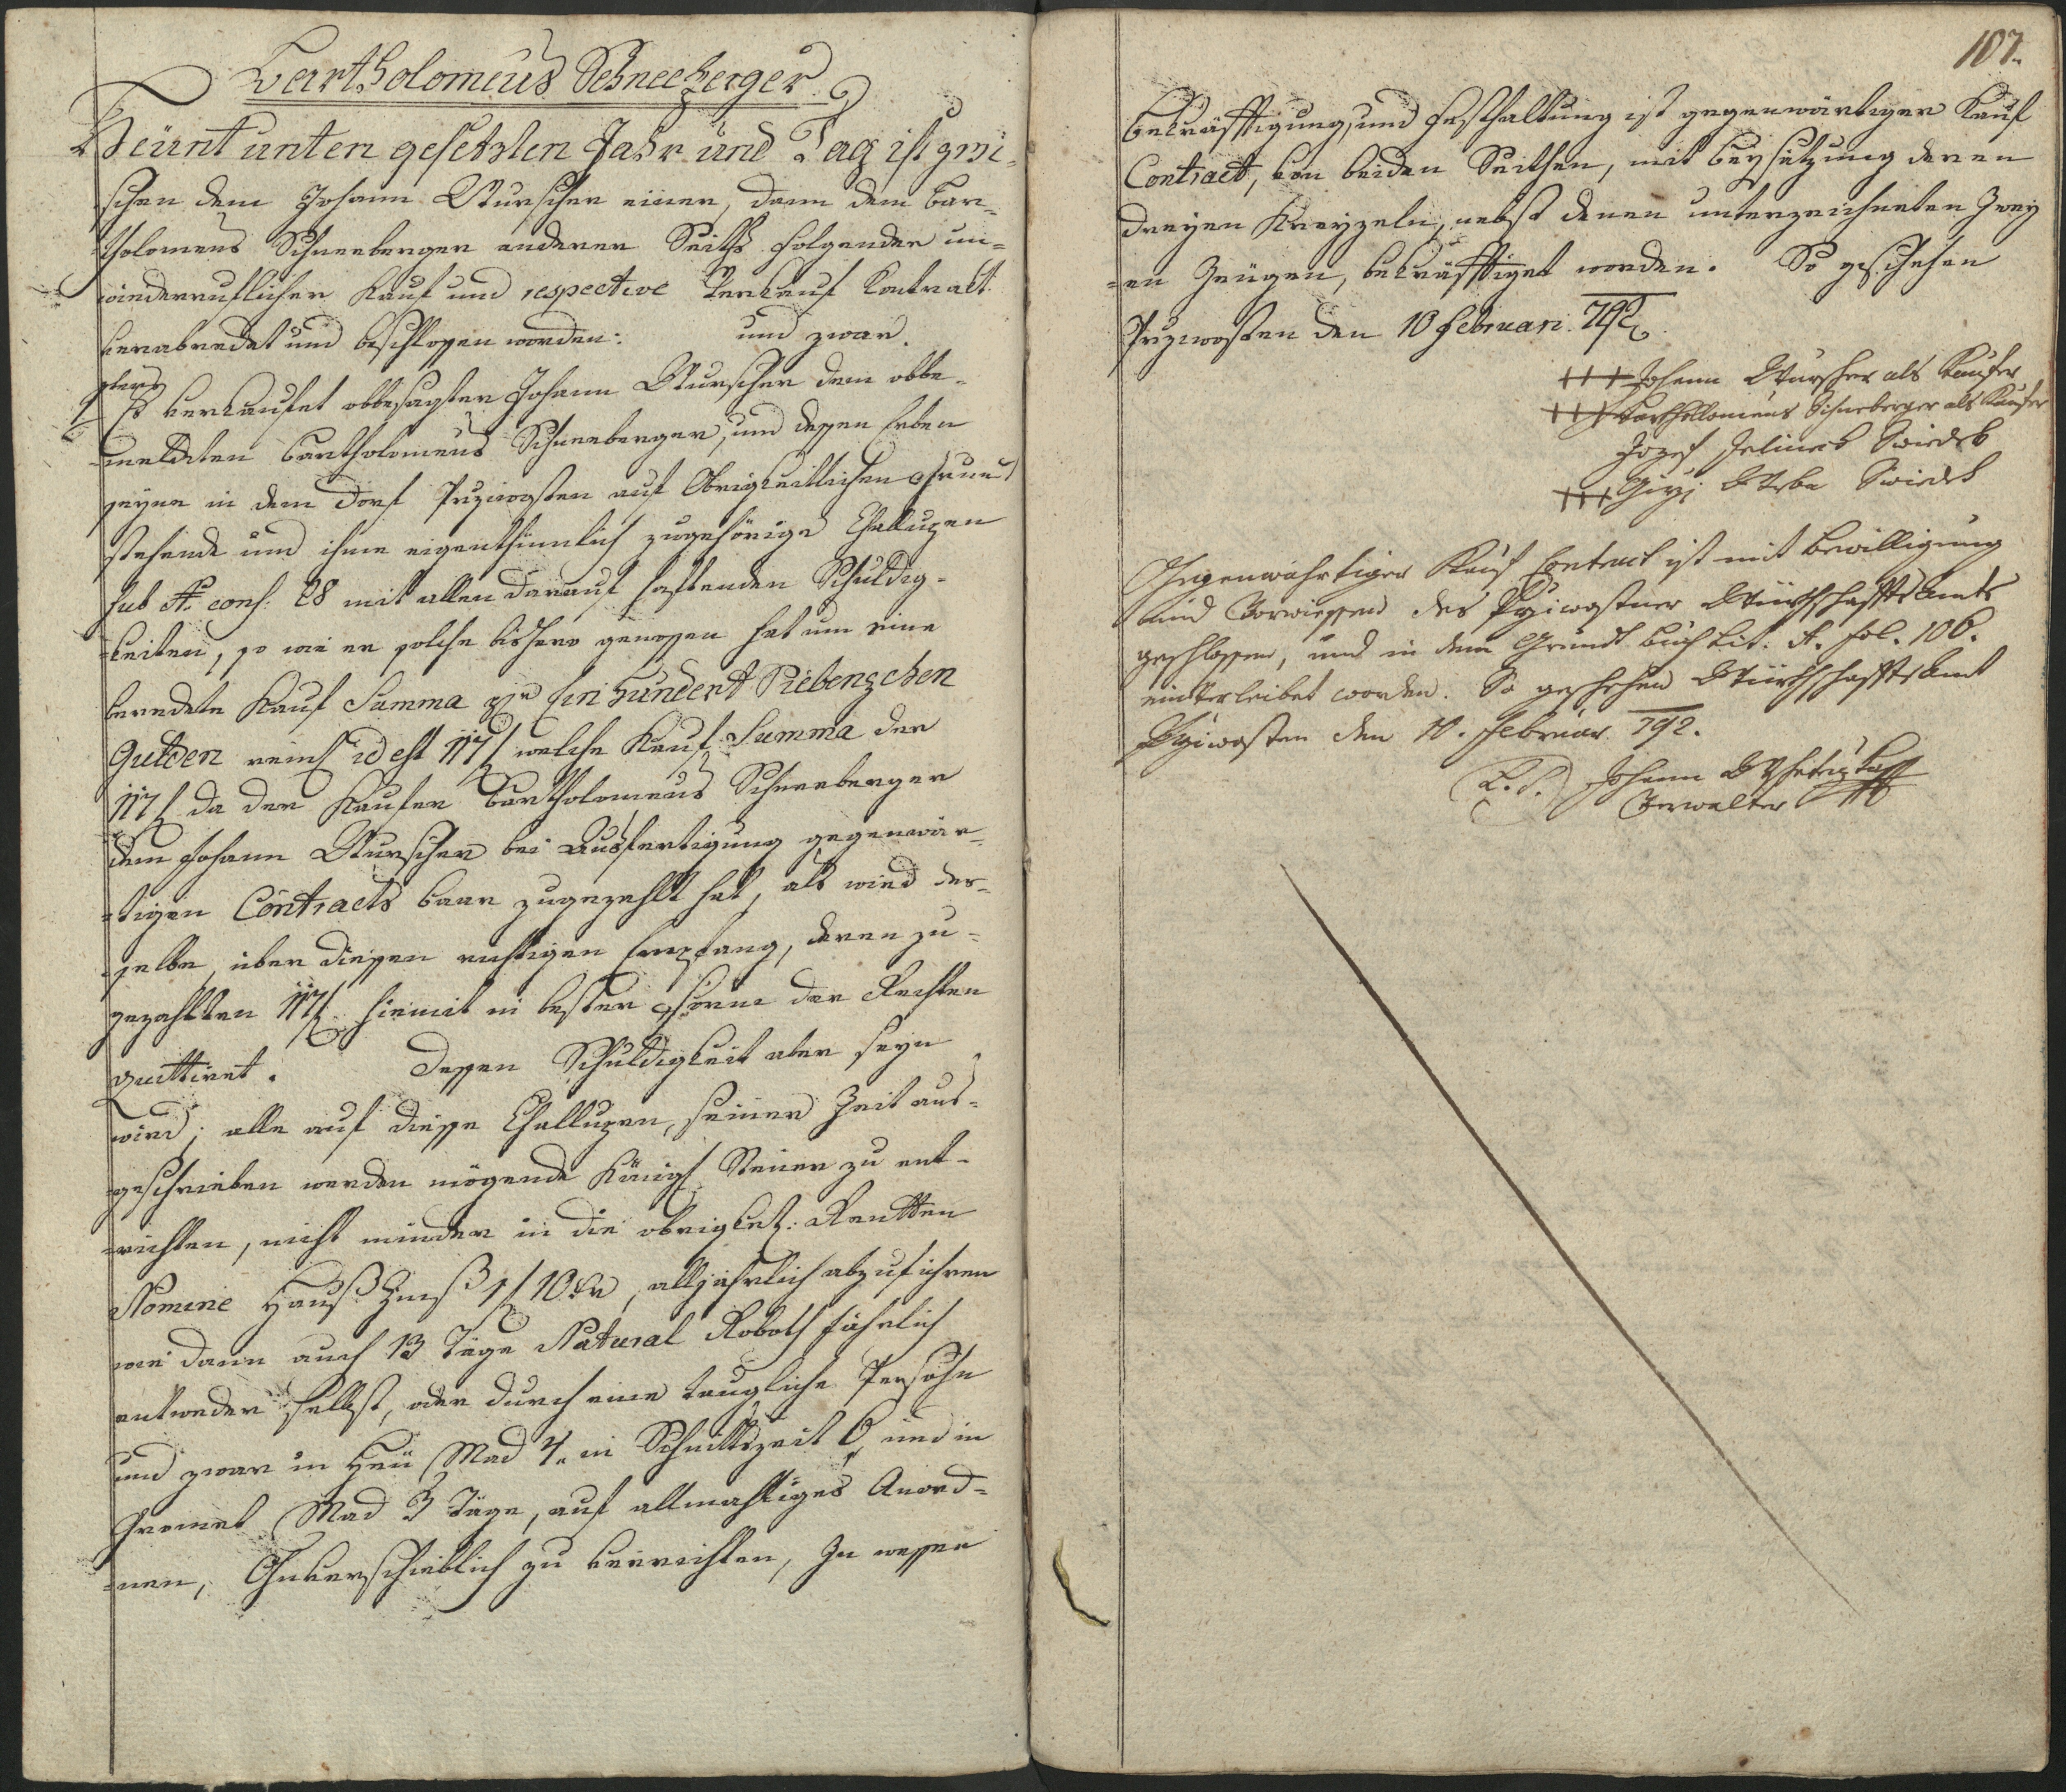 Bartholomeus Schneeberger
Heünt unten gesetzten Jahr und Tag ist zwi-
schen dem Johann Wurscher einer, dann dem Bar-
tholomeus Schneeberger anderer Seiths folgender un-
wiederruflicher Kauf und respective Verkauf Contract
verabredet und beschlossen worden: und zwar.
Es verkaufet obbesagter Johann Wurscher dem obbe-
meldeten Bartholomeus Schneeberger, und dessen Erben
seyne in dem Dorf Prziwosten auf Obrigkeitlichen Grund
stehende und ihme eigenthümlich zugehörige Challupen
sub N. cons: 28 mit allen darauf haftenden Schuldig-
keiten, so wie er solche bishero genossen hat um eine
beredete Kauf Summa pr Ein Hundert Siebenzehen
Gulden reinl id est 117 f welche Kauf Summa der
117 f da der Kaufer Bartholomeus Schneeberger
dem Johann Wurscher bei Ausfertigung gegenwär-
tigen Contracts baar zugezehlt hat, als wird der-
selbe, über diessen richtigen Empfang, deren zu-
gezahlten 117 f hiemit in bester Forme der Rechten
quittiret. Dessen Schuldigkeit aber seyn
wird; alle auf diesse Challupen, seiner Zeit aus-
geschrieben werden mögende Königl Steuer zu ent-
richten, nicht minder in die obrigket: Rentten
Nomine Hauß Zinß 1 f 10 xr, alljährlich abzuführen
wie dann auch 13 Täge Natural Roboth jährlich
entweder selbst, oder durch eine taugliche Persohn
und zwar in Heü Mad 4, in Schnittszeit 6, und in
Gromet Mad 3 Täge, auf allmahliges Anord-
nen, Ohnverschieblich zu verrichten, Zu wessen
107.
Bekräfftigung, und Festhaltung ist gegenwärtiger Kauf
Contract, von beiden Seithen, mit Beysetzung deren
dreyen Kreyzeln, nebst denen unterzeichneten Zwey
en Zeügen, bekräfftiget worden. So geschehen
Przwosten den 10 Februari 792
+++ Johann Wurscher als Kaufer
+++ Bartholomeus Schneberger als Kaufer
Jozef Jelinek Swiedek
+++ Girzi Swiedek
Gegenwährtiger Kauf Contract ist mit Bewilligung
und Vorwiessend des Prziwostner Würthschaffts Amts
geschlossen, und in dem Grundt Buch Lit. A. fol. 106.
eintverleibet worden. So geschehen Würthschaffts Amt
Prziwosten den 10. Februar 792.
L. S. Johann
Verwalter